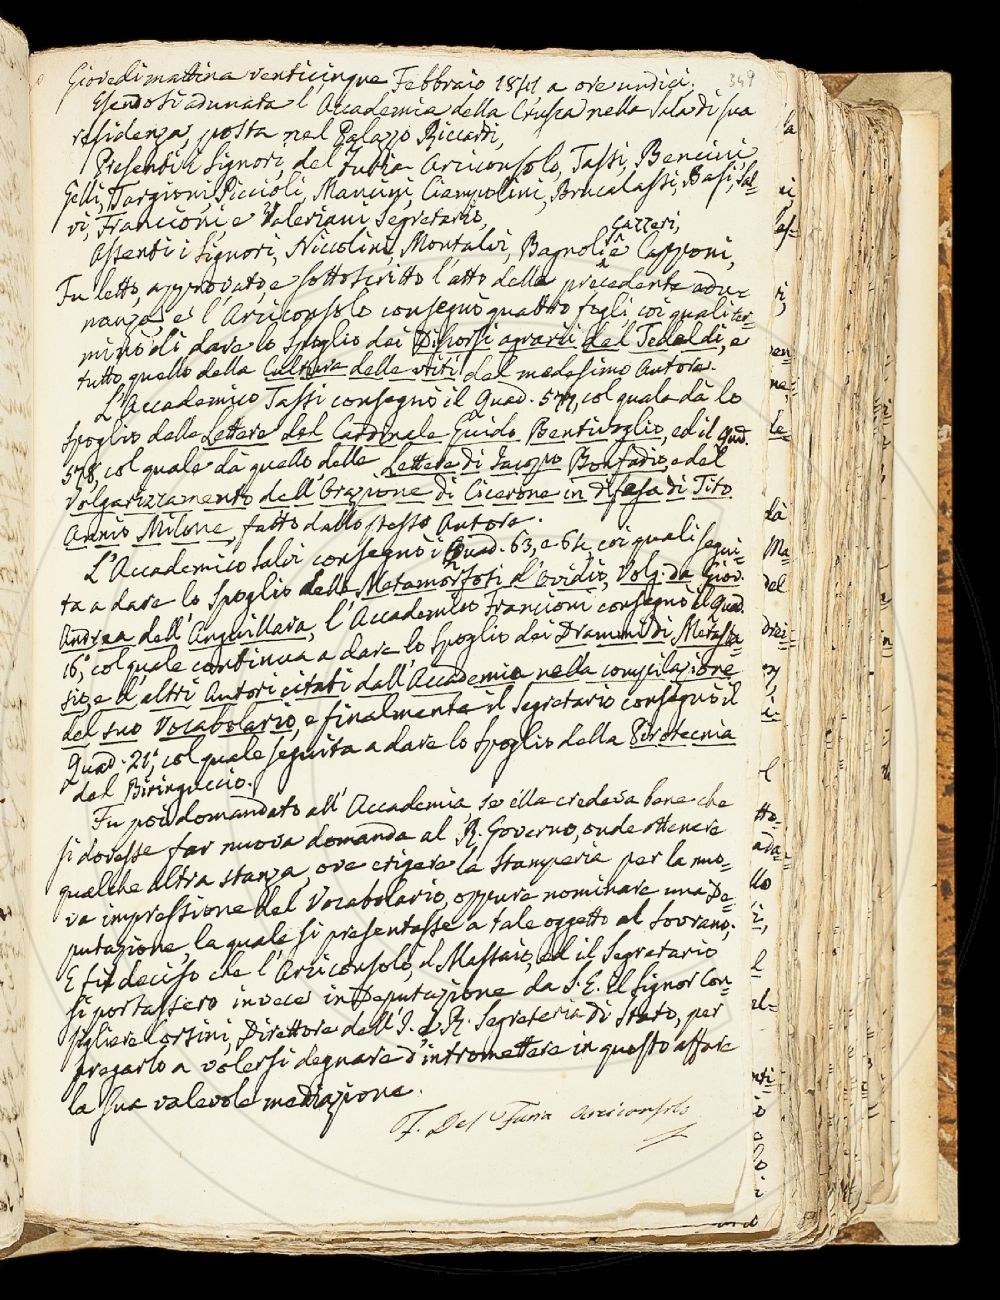 349
Giovedi mattina venticinque Febbraio 1841 a ore undici.
Essendosi adunata l'Accademia della Crusca nella Sala di sua
residenza, posta nel Palazzo Riccardi,
Presenti i Signori, del Furia Arciconsolo, Tassi, Bencini
Gelli, Targioni, Piccioli, Mancini, Ciampolini, Brucalassi, Basi, Sal-
vi, Francioni e Valeriani Segretario,
Assenti i Signori, Niccolini, Montalvi, Bagnoli, Gazzeri, e Capponi,
Fu letto, approvato, e sottoscritto l'atto della precedente adu-
nanza, e l'Arciconsolo consegnò quattro fogli, coi quali ter-
minò di dare lo spoglio dei Discorsi agrarii del Tedaldi, e
tutto quello della Cultura delle viti del medesimo Autore.
L'Accademico Tassi consegnò il Quad. 577, col quale dà lo
spoglio delle Lettere del Cardinale Guido Bentivoglio, ed il Quad.
578, col quale dà quello delle Lettere di Iacopo Bonfadio, e del
Volgarizzamento dell'Orazione di Cicerone in difesa di Tito
Annio Milone, fatto dallo stesso Autore.
L'Accademico Salvi consegnò i Quad. 63, e 64, coi quali segui-
ta a dare lo spoglio delle Metamorfosi d'Ovidio, Volg. da Giov.
Andrea dell'Anguillara, l'Accademico Francioni consegnò il Quad.
16, col quale continua a dare lo spoglio dei Drammi di Metasta-
sio, e d'altri Autori citati dall'Accademia nella compilazione
del suo Vocabolario, e finalmente il Segretario consegnò il
Quad. 21, col quale seguita a dare lo spoglio della Pirotecnia
del Biringuccio.
Fu poi domandato all'Accademia, se ella credeva bene che
si dovesse far nuova domanda al R. Governo, onde ottenere
qualche altra stanza, ove erigere la Stamperia per la nuo-
va impressione del Vocabolario, oppure nominare una De-
putazione, la quale si presentasse a tale oggetto al Sovrano.
E fu deciso che l'Arciconsolo, il Massaio, ed il Segretario
si portassero invece in Deputazione da S. E. il Signor Con-
sigliere Corsini, Direttore dell'I. e R. Segreteria di Stato, per
pregarlo a volersi degnare d'intromettere in questo affare
la sua valevole mediazione.
F. Del Furia Arciconsolo